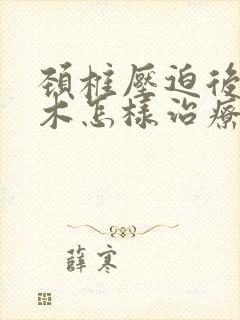 頸椎壓迫後
木怎樣治療
薛寒